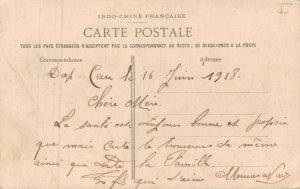 INDO-CHINE FRANÇAISE
CARTE POSTALE
TOUS LES PAYS ÉTRANGERS N'ACCEPTENT PAS LA CORRESPONDANCE AU RECTO ; SE RENSEIGNER A LA POSTE
Correspondance Adresse
Dap-Cau le 16 Juin 1918.
Chère Mère.
La santé est toujours bonne et j'espère
que ma carte te trouvera de même
ainsi que toute la Famille.
Ton fils qui t'aime